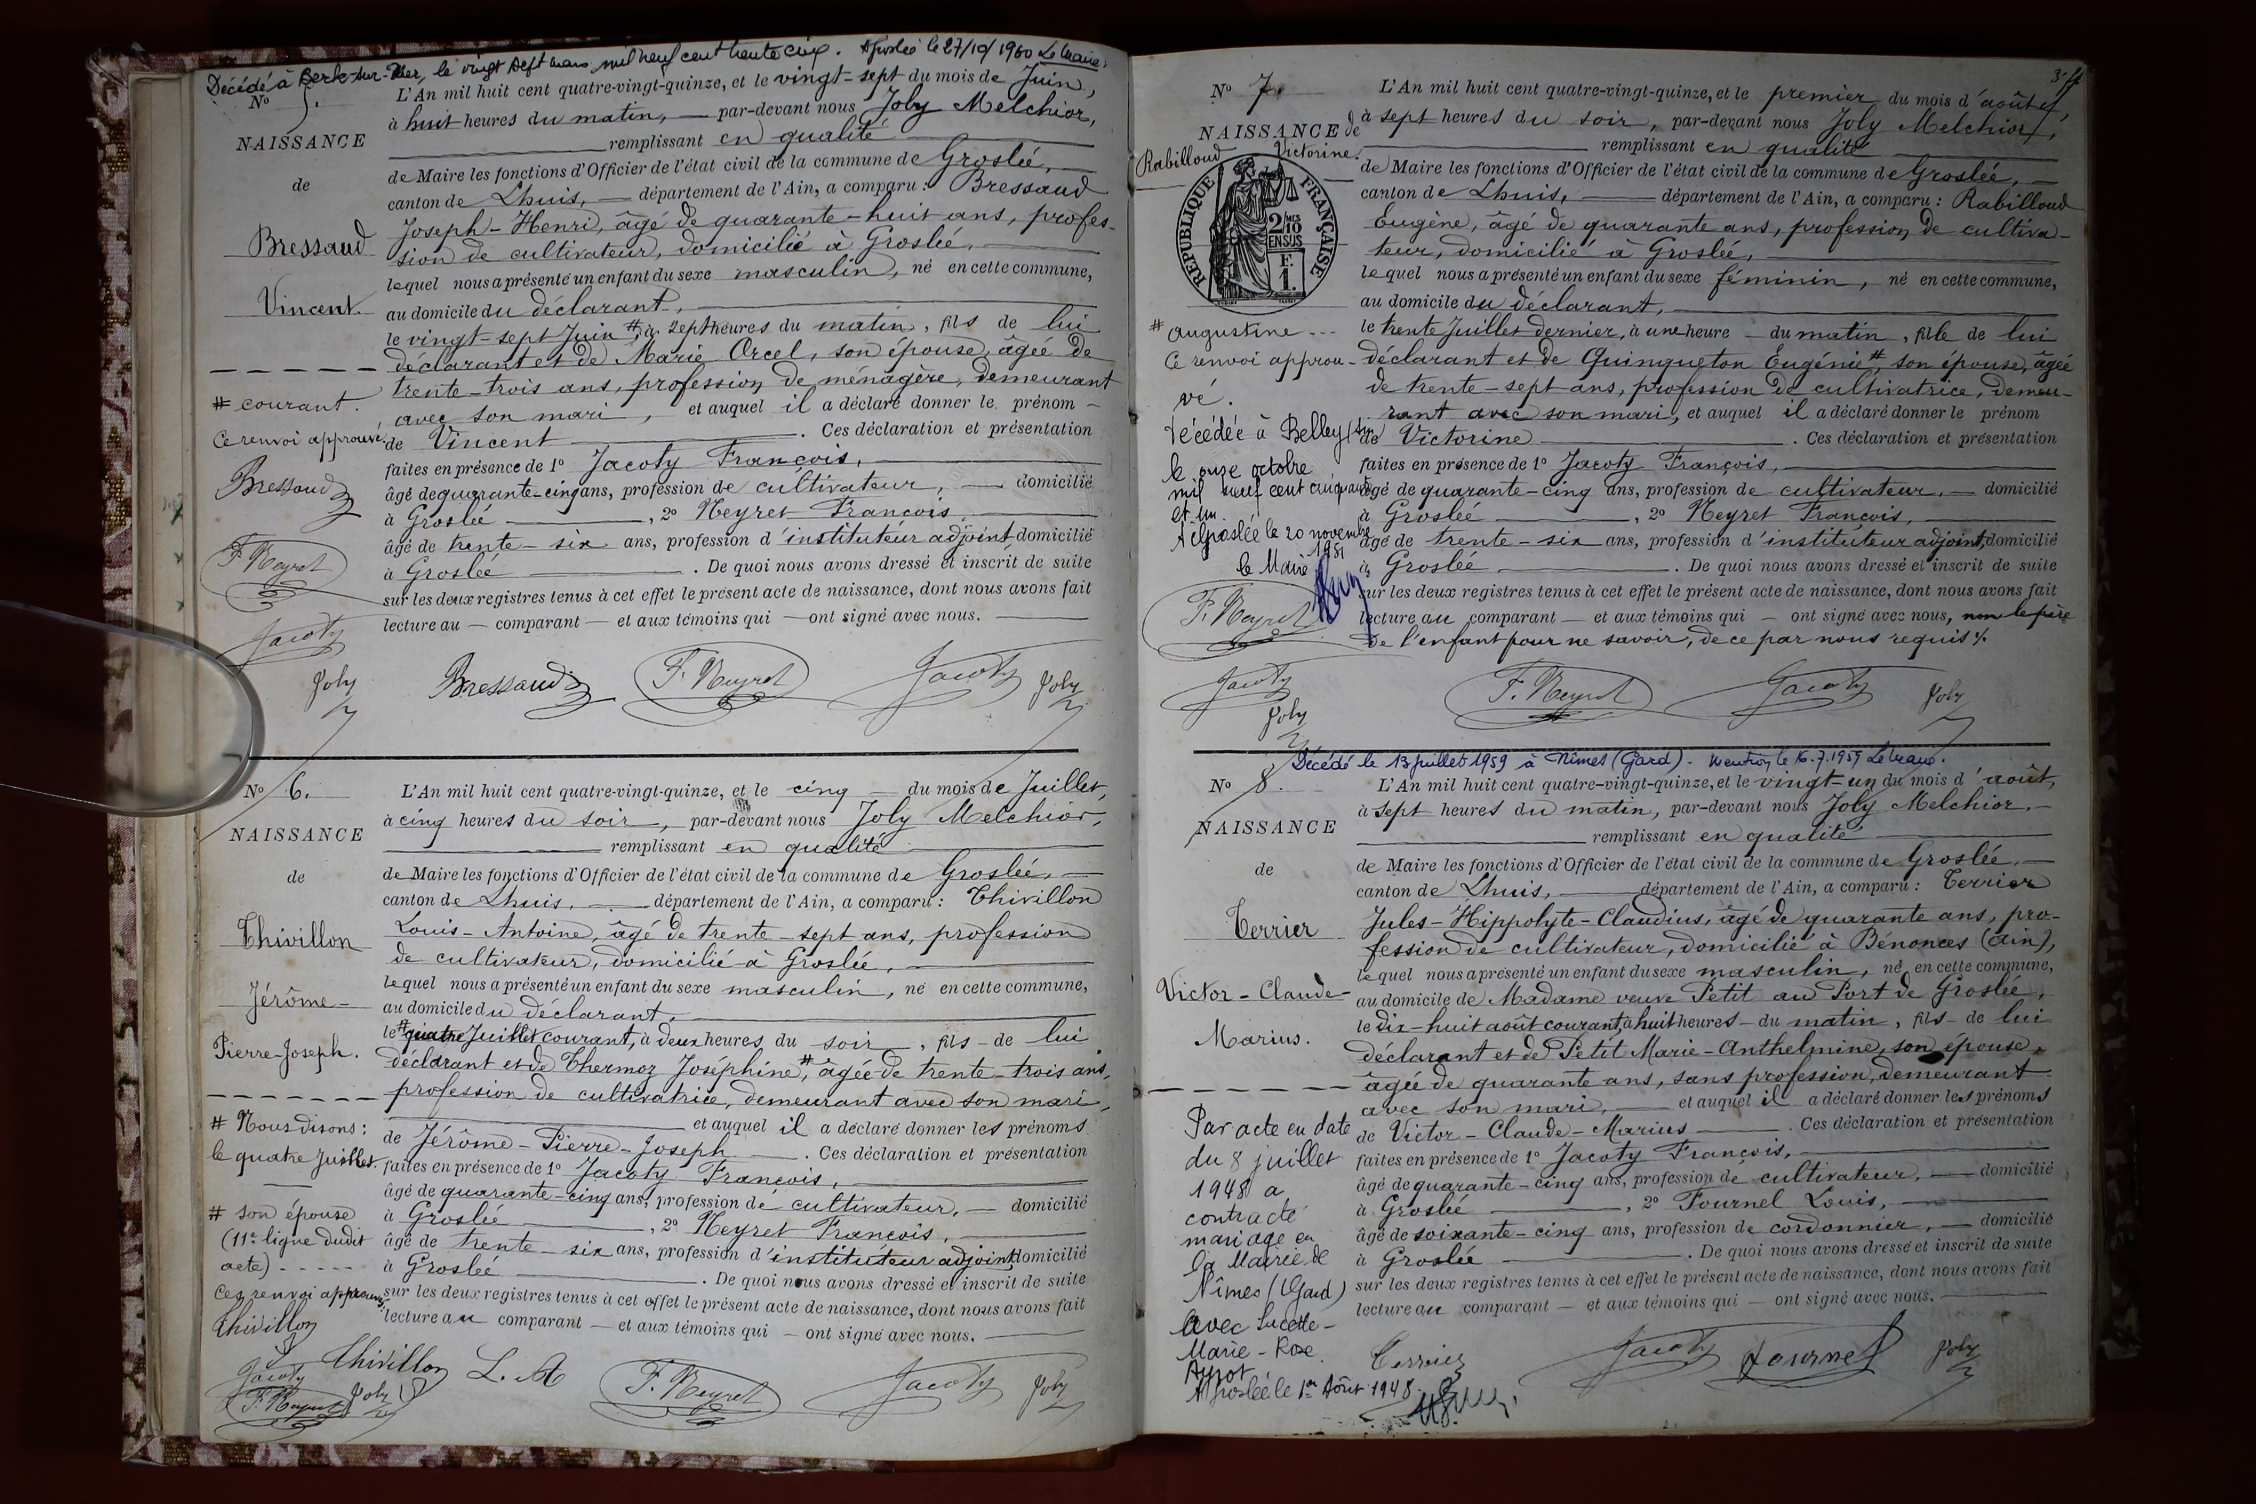 Décédé à Berck-sur-Mer, le vingt sept mars mil neuf cent trente cinq. A Groslée le 27/10/1960 Le Maire:
No 5.
NAISSANCE
de
Bressaud
Vincent.
# courant.
Ce renvoi approuvé:
Bressaud
F. Neyret
Jacoty
Joly
L'An mil huit cent quatre-vingt-quinze, et le vingt-sept du mois de Juin,
à huit heures du matin, par-devant nous Joly Melchior,
remplissant en qualité
de Maire les fonctions d'Officier de l'état civil de la commune de Groslée,
canton de Lhuis, département de l'Ain, a comparu: Bressaud
Joseph-Henri, âgé de quarante-huit ans, profes-
sion de cultivateur, domicilié à Groslée,
lequel nous a présenté un enfant du sexe masculin, né en cette commune,
au domicile du déclarant,
le vingt-sept Juin #, à sept heures du matin, fils de lui
déclarant et de Marie Orcel, son épouse, âgée de
trente-trois ans, profession de ménagère, demeurant
avec son mari, et auquel il a déclaré donner le prénom
de Vincent. Ces déclaration et présentation
faites en présence de 1o Jacoty François,
âgé de quarante-cinq ans, profession de cultivateur, domicilié
à Groslée, 2o Neyret François,
âgé de trente-six ans, profession d'instituteur adjoint domicilié
à Groslée. De quoi nous avons dressé et inscrit de suite
sur les deux registres tenus à cet effet le présent acte de naissance, dont nous avons fait
lecture au comparant et aux témoins qui ont signé avec nous.
Bressaud F. Neyret Jacoty Joly
No 6.
NAISSANCE
de
Thivillon
Jérôme-
Pierre-Joseph.
# Nous disons:
le quatre Juillet.
# son épouse
(11e ligne dudit
acte)
Ces renvoi approuvés:
Thivillon
Jacoty
F. Neyret Joly
L'An mil huit cent quatre-vingt-quinze, et le cinq du mois de Juillet,
à cinq heures du soir, par-devant nous Joly Melchior,
remplissant en qualité
de Maire les fonctions d'Officier de l'état civil de la commune de Groslée,
canton de Lhuis, département de l'Ain, a comparu: Thivillon
Louis-Antoine, âgé de trente-sept ans, profession
de cultivateur, domicilié à Groslée,
lequel nous a présenté un enfant du sexe masculin, né en cette commune,
au domicile du déclarant,
le # quatre Juillet courant, à deux heures du soir, fils de lui
déclarant et de Thermoz Joséphine, # âgée de trente-trois ans,
profession de cultivatrice, demeurant avec son mari,
et auquel il a déclaré donner les prénoms
de Jérôme-Pierre-Joseph. Ces déclaration et présentation
faites en présence de 1o Jacoty François,
âgé de quarante-cinq ans, profession de cultivateur, domicilié
à Groslée, 2o Neyret François,
âgé de trente-six ans, profession d'instituteur adjoint, domicilié
à Groslée. De quoi nous avons dressé et inscrit de suite
sur les deux registres tenus à cet effet le présent acte de naissance, dont nous avons fait
lecture au comparant et aux témoins qui ont signé avec nous.
Thivillon L. A F. Neyret Jacoty Joly
No 7.
NAISSANCE de
Rabilloud Victorine.
RÉPUBLIQUE FRANÇAISE
2/10 MES EN SUS
F. 1.
# Augustine
Ce renvoi approu-
vé.
Décédée à Belley (Ain)
le onze octobre
mil neuf cent cinquante
et un.
A Groslée le 20 novembre
1951
Le Maire
F. Neyret
Jacoty
Joly
L'An mil huit cent quatre-vingt-quinze, et le premier du mois d'août,
à sept heures du soir, par-devant nous Joly Melchior,
remplissant en qualité
de Maire les fonctions d'Officier de l'état civil de la commune de Groslée,
canton de Lhuis, département de l'Ain, a comparu: Rabilloud
Eugène, âgé de quarante ans, profession de cultiva-
teur, domicilié à Groslée,
lequel nous a présenté un enfant du sexe féminin, né en cette commune,
au domicile du déclarant,
le trente Juillet dernier, à une heure du matin, fille de lui
déclarant et de Quinqueton Eugénie #, son épouse, âgée
de trente-sept ans, profession de cultivatrice, demeu-
rant avec son mari, et auquel il a déclaré donner le prénom
de Victorine. Ces déclaration et présentation
faites en présence de 1o Jacoty François,
âgé de quarante-cinq ans, profession de cultivateur, domicilié
à Groslée, 2o Neyret François,
âgé de trente-six ans, profession d'instituteur adjoint, domicilié
à Groslée. De quoi nous avons dressé et inscrit de suite
sur les deux registres tenus à cet effet le présent acte de naissance, dont nous avons fait
lecture au comparant et aux témoins qui ont signé avec nous, non le père
de l'enfant pour ne savoir, de ce par nous requis %.
F. Neyret Jacoty Joly
Décédé le 13 juillet 1959 à Nîmes (Gard). Mention le 16.7.1959 Le Maire.
No 8.
NAISSANCE
de
Terrier
Victor-Claude-
Marius.
Par acte en date
du 8 juillet
1948 a
contracté
mariage en
la Mairie de
Nîmes (Gard)
avec Lucette-
Marie-Rose
Ayrot
A Groslée le 1er Août 1948.
L'An mil huit cent quatre-vingt-quinze, et le vingt-un du mois d'août,
à sept heures du matin, par-devant nous Joly Melchior,
remplissant en qualité
de Maire les fonctions d'Officier de l'état civil de la commune de Groslée,
canton de Lhuis, département de l'Ain, a comparu: Terrier
Jules-Hippolyte-Claudius, âgé de quarante ans, pro-
fession de cultivateur, domicilié à Bénonces (Ain),
lequel nous a présenté un enfant du sexe masculin, né en cette commune,
au domicile de Madame veuve Petit au Port de Groslée,
le dix-huit août courant, à huit heures du matin, fils de lui
déclarant et de Petit Marie-Anthelmine, son épouse,
âgée de quarante ans, sans profession, demeurant
avec son mari, et auquel il a déclaré donner les prénoms
de Victor-Claude-Marius. Ces déclaration et présentation
faites en présence de 1o Jacoty François,
âgé de quarante-cinq ans, profession de cultivateur, domicilié
à Groslée, 2o Fournel Louis,
âgé de soixante-cinq ans, profession de cordonnier, domicilié
à Groslée. De quoi nous avons dressé et inscrit de suite
sur les deux registres tenus à cet effet le présent acte de naissance, dont nous avons fait
lecture au comparant et aux témoins qui ont signé avec nous.
Terrier Jacoty Fournel Joly